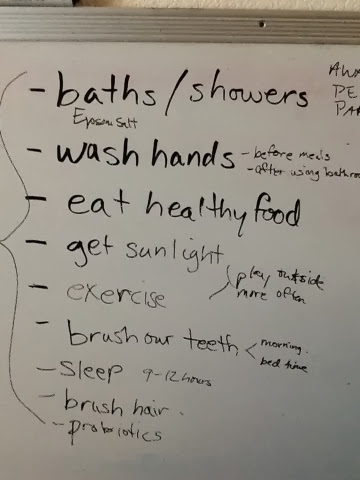 - baths / showers
Epsom Salt
- wash hands - before meals
- after using bathroo
- eat healthy food
- get sunlight
play outside
more often
- exercise
- brush our teeth < morning.
bed time
- Sleep 9-12 hours
- brush hair.
- probiotics
AWA
PE
PA